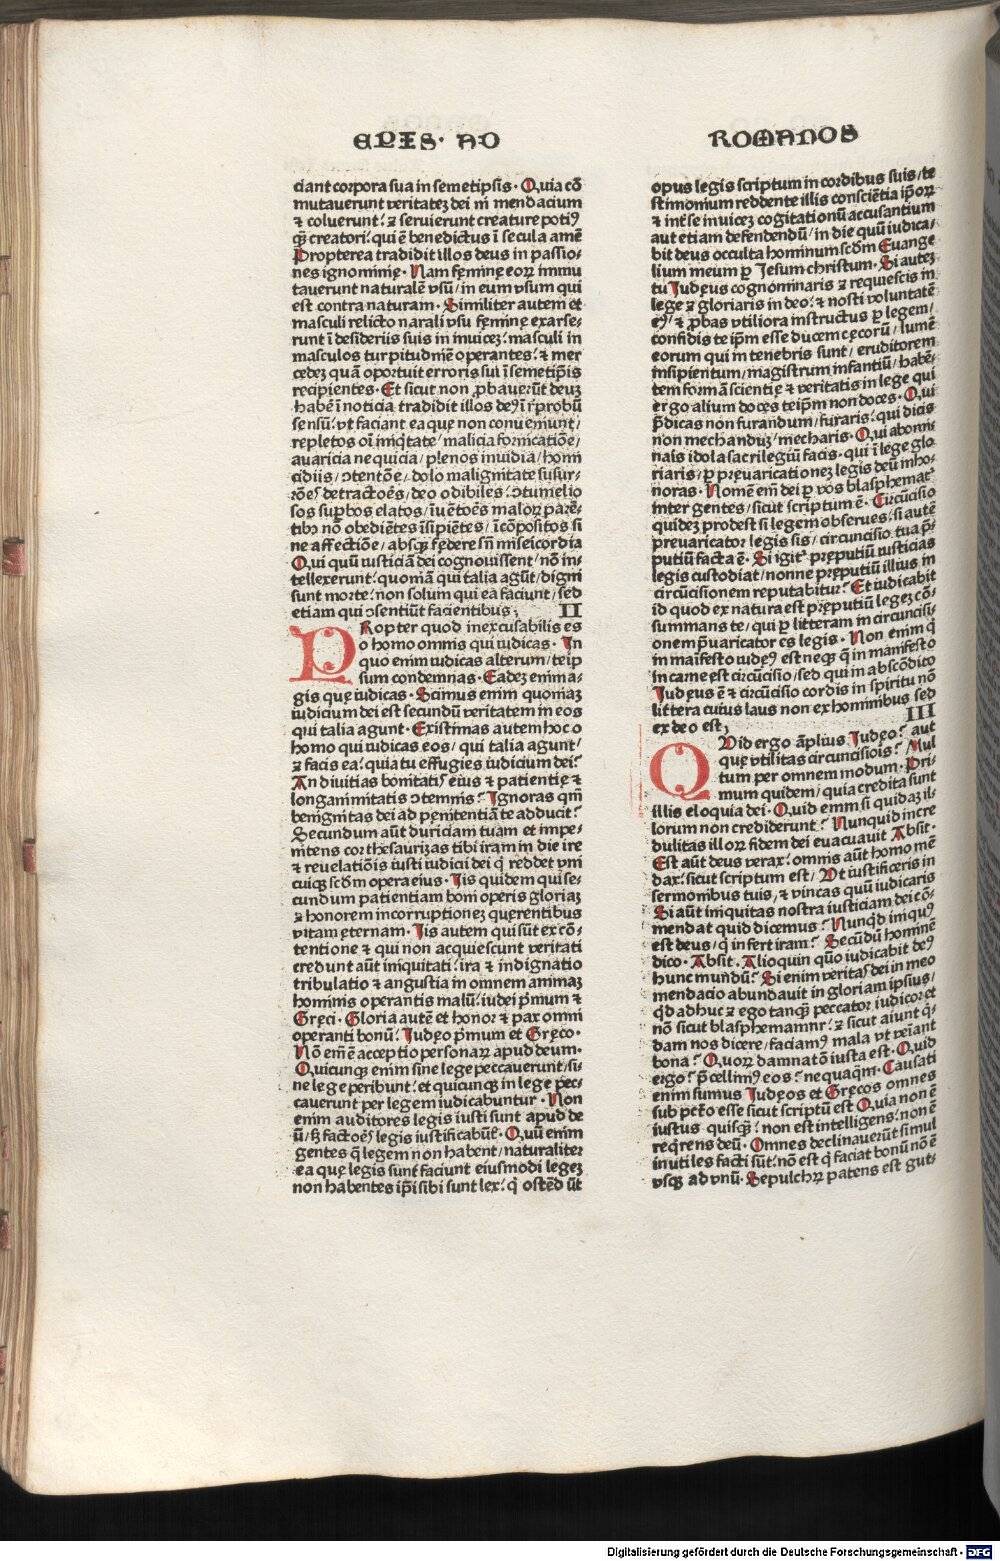 EPIS· AD
ciant corpora sua in semetipsis· Quia cõ
mutauerunt veritatez dei ĩ mendacium
⁊ coluerunt: ⁊ seruierunt creature potiꝰ
q̃ȝ creatori: qui ẽ benedictus ĩ secula amẽ
Propterea tradidit illos deus in passio⸗
nes ignominię· Nam fęminę eoꝝ immu
tauerunt naturalẽ vsũ/ in eum vsum qui
est contra naturam· Similiter autem et
masculi relicto narali vsu fęminę exarse⸗
runt ĩ desideriis suis in inuicez: masculi in
masculos turpitudinẽ operantes: ⁊ mer
cedez quã oportuit erroris sui ĩ semetip̃is
recipientes· Et sicut non ꝓbauerũt deuz
habẽ ĩ noticia tradidit illos deꝰ ĩ r̃probũ
sensũ: vt faciant ea que non conueniunt/
repletos oĩ iniq̃tate/ malicia fornicatiõe/
auaricia nequicia/ plenos inuidia/ homi
cidiis/ ↄtentõe/ dolo malignitate susur⸗
rõeſ detractoẽs/ deo odibiles: ↄtumelio
sos suꝑbos elatos/ ĩuẽtoẽs maloꝝ parẽ⸗
tibꝰ nõ obediẽtes ĩsipiẽtes/ ĩcõpositos si
ne affectiõe/ absqȝ fędere sñ misericordia
Qui quũ iusticiã dei cognouissent/ nõ in⸗
tellexerunt: quoniã qui talia agũt/ digni
sunt morte: non solum qui ea faciunt/ sed
etiam qui ↄsentiũt facientibus; II
PRopter quod inexcusabilis es
o homo omnis qui iudicas· In
quo enim iudicas alterum/ teip̃
sum condemnas· Eadez enim a⸗
gis quę iudicas· Scimus enim quoniaz
iudicium dei est secundũ veritatem in eos
qui talia agunt· Existimas autem hoc o
homo qui iudicas eos/ qui talia agunt/
⁊ facis ea: quia tu effugies iudicium dei?
An diuitias bonitatiſ eius ⁊ patientię ⁊
longanimitatis ↄtemnis? Ignoras qm̃
benignitas dei ad pęnitentiã te adducit?
Secundum aũt duriciam tuam et impe⸗
nitens cor thesaurizas tibi iram in die ire
⁊ reuelatiõis iusti iudicii dei q̃ reddet vni
cuiqȝ scd̃m opera eius· Iis quidem qui se⸗
cundum patientiam boni operis gloriaz
⁊ honorem incorruptionez quęrentibus
vitam ęternam· Iis autem qui sũt ex cõ⸗
tentione ⁊ qui non acquiescunt veritati
credunt aũt iniquitati: ira ⁊ indignatio
tribulatio ⁊ angustia in omnem animaz
hominis operantis malũ: iudei p̃mum ⁊
Gręci· Gloria autẽ et honor ⁊ pax omni
operanti bonũ: Iudęo p̃mum et Gręco·
Nõ em̃ ẽ acceptio personaꝝ apud deum·
Quicunqȝ enim sine lege peccauerunt/ si⸗
ne lege peribunt: et quicunqȝ in lege pec⸗
cauerunt per legem iudicabuntur· Non
enim auditores legis iusti sunt apud de
ũ/ sȝ factoẽs legis iustificabũt̃· Quũ enim
gentes q̃ legem non habent/ naturaliter
ea quę legis sunt faciunt eiusmodi legez
non habentes ip̃i sibi sunt lex: q̃ ostẽdũt
ROMANOS
opus legis scriptum in cordibus suis/ te
stimonium reddente illis consciẽtia ip̃oꝝ
⁊ inẽ se inuicez cogitationũ accusantium
aut etiam defendendũ/ in die quũ iudica⸗
bit deus occulta hominum scd̃m Euange
lium meum ꝑ Iesum christum· Si autez
tu Iudęus cognominaris ⁊ requiescis in
lege ⁊ gloriaris in deo: ⁊ nosti voluntatẽ
eiꝰ/ ⁊ ꝓbas vtiliora instructus ꝑ legem/
confidis teip̃m esse ducem cęcorũ/ lumẽ
eorum qui in tenebris sunt/ eruditorem
insipientum/ magistrum infantiũ/ habẽ⸗
tem formã scientię ⁊ veritatis in lege qui
ergo alium doces teip̃m non doces· Qui
p̃dicas non furandum/ furaris: qui dicis
non mechanduȝ/ mecharis· Qui abomi
naris idola sacrilegiũ facis· qui ĩ lege glo
riaris/ ꝑ pręuaricationez legis deũ inho⸗
noras· Nomẽ em̃ dei ꝑ vos blasphemat̃
inter gentes/ sicut scriptum ẽ· Circũcisio
quidez prodest si legem obserues: si autẽ
preuaricator legis sis/ circuncisio tua p̃⸗
putiũ facta ẽ· Si igit̃ pręputiũ iusticias
legis custodiat/ nonne pręputiũ illius in
circũcisionem reputabitur? Et iudicabit
id quod ex natura est pręputiũ legez cõ⸗
summans te/ qui ꝑ litteram in circuncisi⸗
onem p̃uaricator es legis· Non enim q̃
in maĩfesto iudęꝰ est neqȝ q̃ in manifesto
in carne est circũcisio/ sed qui in abscõdico
Iudęus ẽ ⁊ circũcisio cordis in spiritu nõ
littera cuius laus non ex hominibus sed
ex deo est; III
QUid ergo ãplius Iudęo? aut
quę vtilitas circuncisiois? Mul
tum per omnem modum· Pri⸗
mum quidem/ quia credita sunt
illis eloquia dei· Quid enim si quidaz il⸗
lorum non crediderunt? Nunquid incre
dulitas illoꝝ fidem dei euacuauit Absit·
Est aũt deus verax: omnis aũt homo mẽ
dax: sicut scriptum est/ Vt iustificeris in
sermonibus tuis, ⁊ vincas quũ iudicaris
Si aũt iniquitas nostra iusticiam dei cõ⸗
mendat quid dicemus? Nunq̃d iniquꝰ
est deus/ q̃ infert iram? Secũdũ hominẽ
dico· Absit· Alioquin quõ iudicabit deꝰ
hunc mundũ? Si enim veritaſ dei in meo
mendacio abundauit in gloriam ipsius/
q̃d adhuc ⁊ ego tanqȝ peccator iudicor: et
nõ sicut blasphemamnr: ⁊ sicut aiunt q̃⸗
dam nos dicere/ faciamꝰ mala vt veĩant
bona? Quoꝝ damnatõ iusta est· Quid
ergo? p̃cellimꝰ eos? nequaq̃m· Causati
enim sumus Iudęos et Gręcos omnes
sub pctõ esse sicut scriptũ est Quia non ẽ
iustus quisqȝ: non est intelligens: non ẽ
req̃rens deũ· Omnes declinauerũt simul
inutiles facti sũt: nõ est q̃ faciat bonũ nõ ẽ
vsqȝ ad vnũ· Sepulchꝝ patens est gut⸗
Digitalisierung gefördert durch die Deutsche Forschungsgemeinschaft - DFG